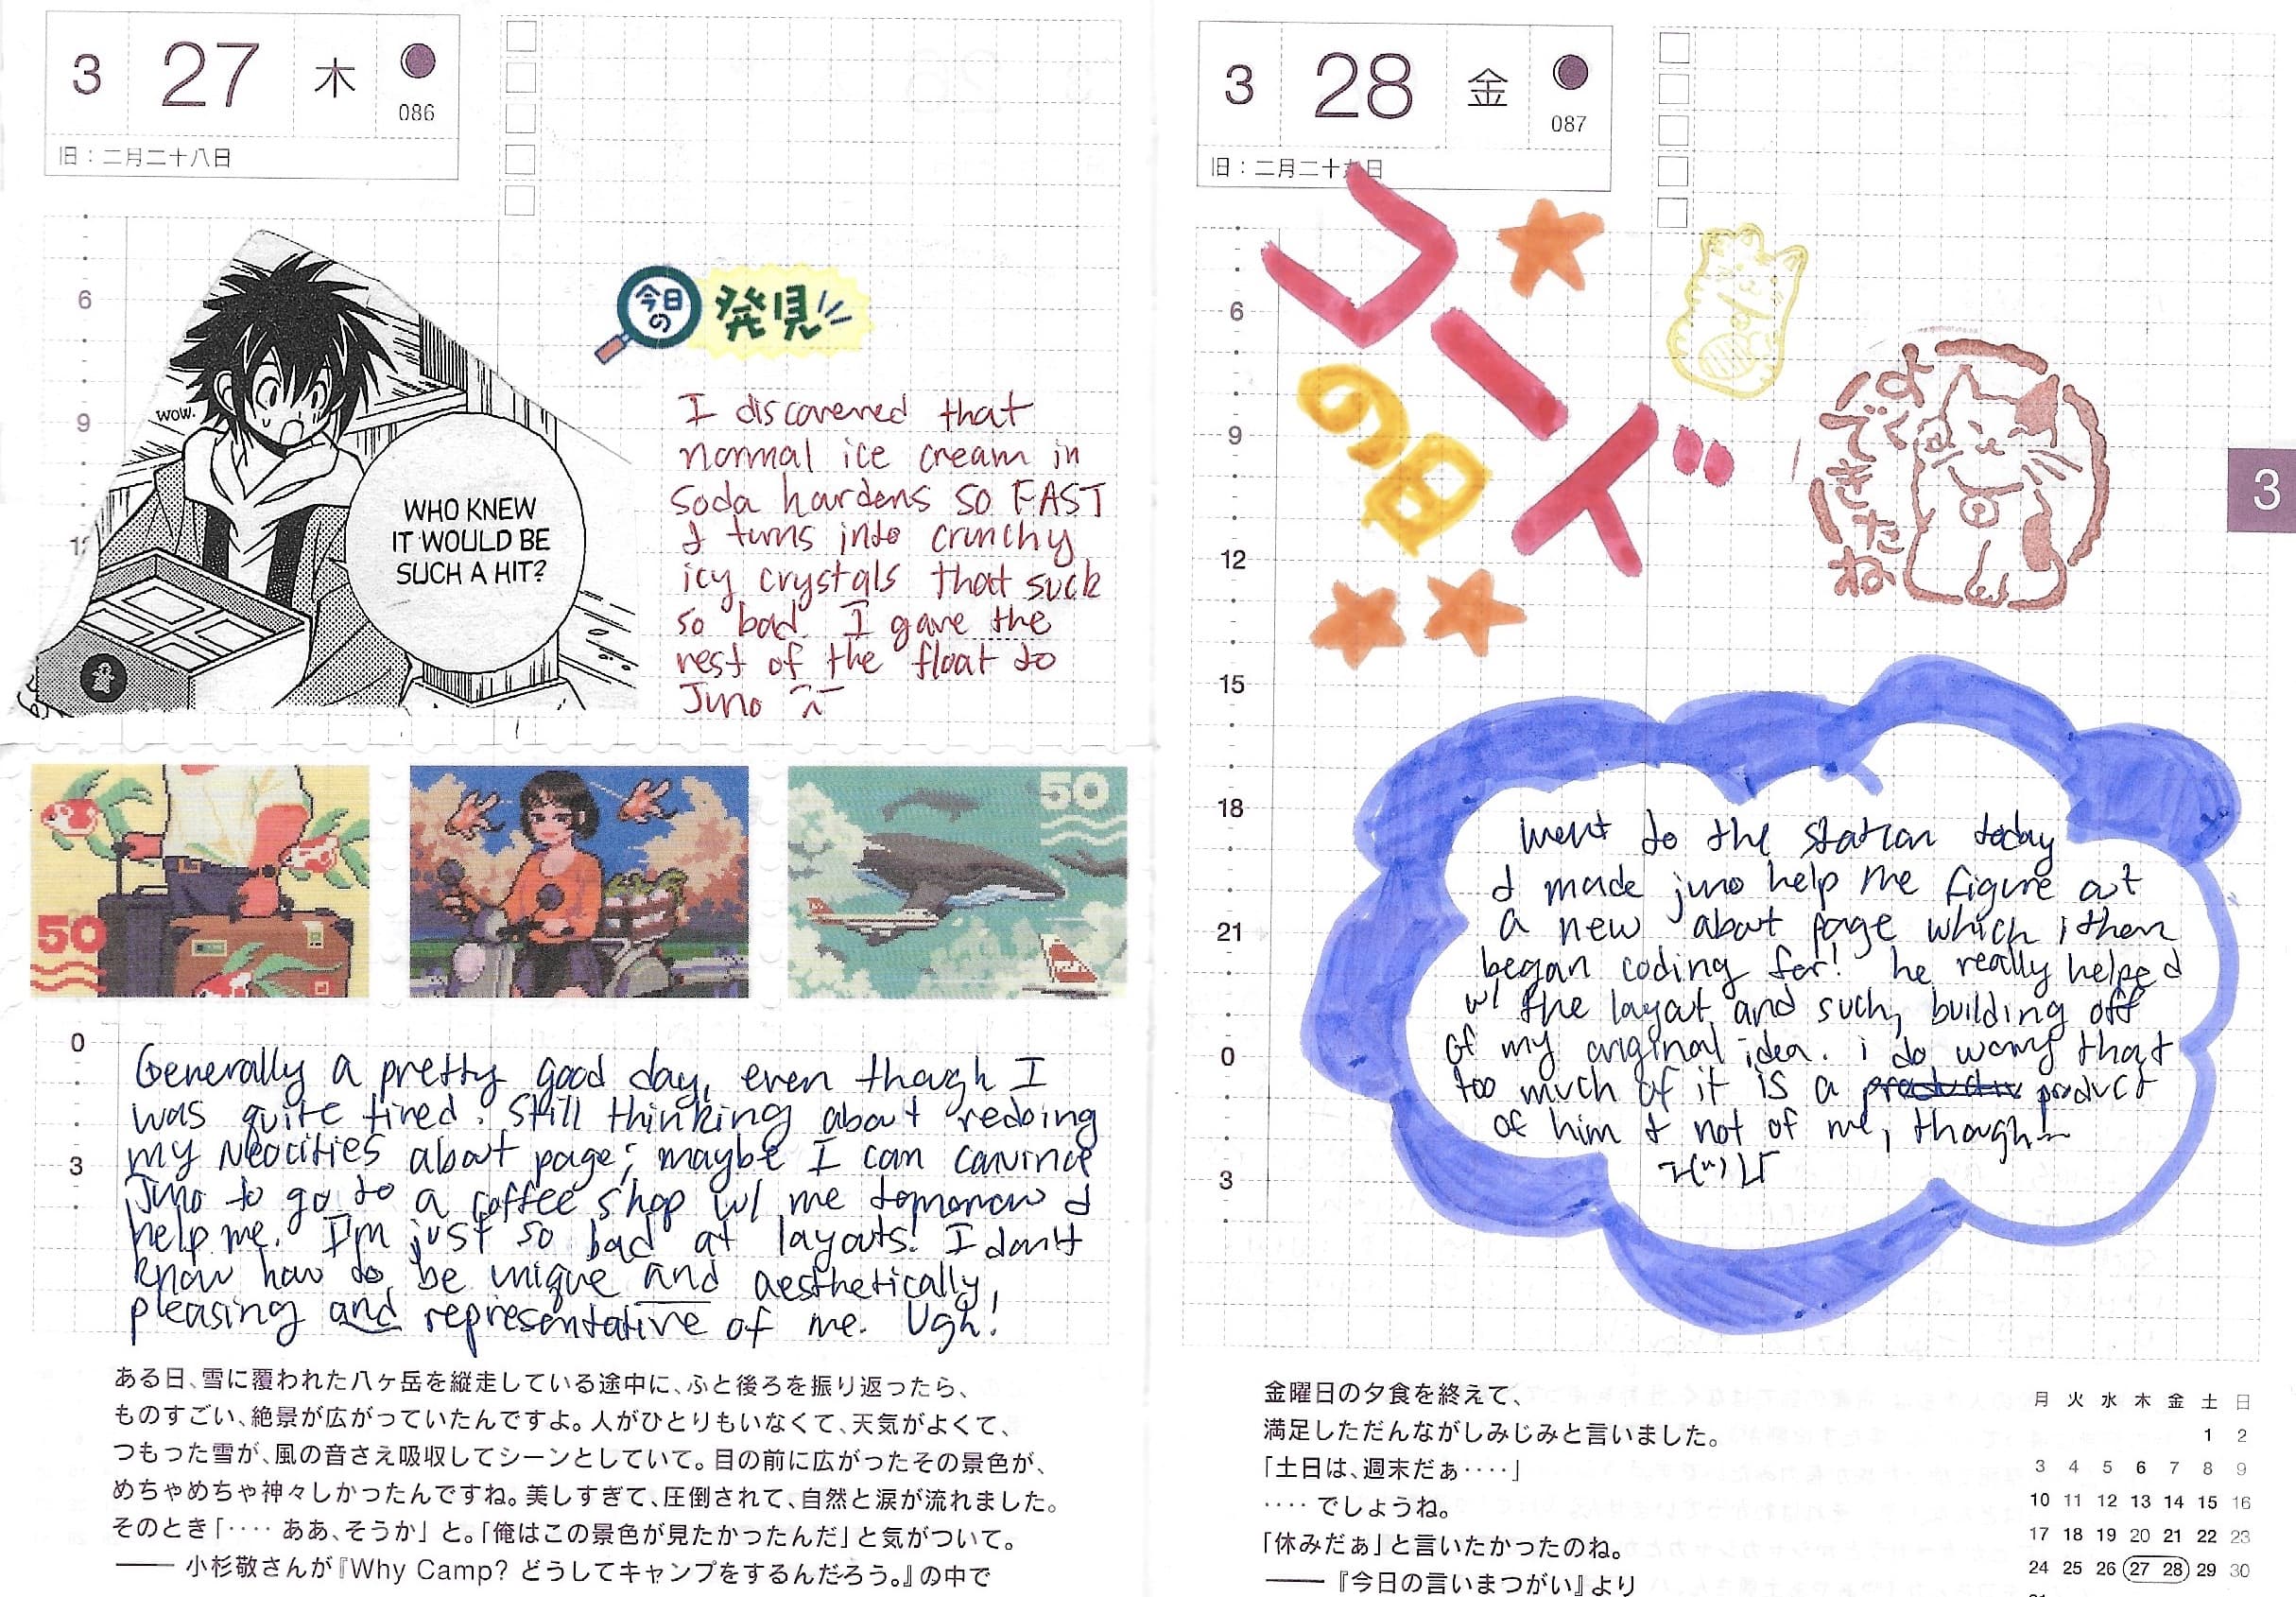 3 27 木
086
旧：二月二十八日
6
9
WOW.
WHO KNEW
IT WOULD BE
SUCH A HIT?
今日
の
発見
I discovered that
normal ice cream in
soda hardens so FAST
& turns into crunchy
icy crystals that suck
so bad. I gave the
rest of the float to
Juno
50
50
0
3
Generally a pretty good day, even though I
was quite tired. Still thinking about redoing
my Neocities about page; maybe I can convince
Juno to go to a coffee shop w/ me tomorrow &
help me. I'm just so bad at layouts! I don't
know how to be unique and aesthetically
pleasing and representative of me. Ugh!
ある日、雪に覆われた八ヶ岳を縦走している途中に、ふと後ろを振り返ったら、
ものすごい、絶景が広がっていたんですよ。人がひとりもいなくて、天気がよくて、
つもった雪が、風の音さえ吸収してシーンとしていて。目の前に広がったその景色が、
めちゃめちゃ神々しかったんですね。美しすぎて、圧倒されて、自然と涙が流れました。
そのとき「‥‥ ああ、そうか」と。「俺はこの景色が見たかったんだ」と気がついて。
―― 小杉敬さんが『Why Camp? どうしてキャンプをするんだろう。』の中で
3 28 金
087
旧：二月二十九日
コード
の日
よく
できたね
3
6
9
12
15
18
21
0
3
went to the station today
& made juno help me figure out
a new about page which i then
began coding for! he really helped
w/ the layout and such, building off
of my original idea. i do worry that
too much of it is a product
of him & not of me, though
金曜日の夕食を終えて、
満足しただんながしみじみと言いました。
「土日は、週末だぁ‥‥」
‥‥ でしょうね。
「休みだぁ」と言いたかったのね。
―― 『今日の言いまつがい』より
月 火 水 木 金 土 日
1 2
3 4 5 6 7 8 9
10 11 12 13 14 15 16
17 18 19 20 21 22 23
24 25 26 27 28 29 30